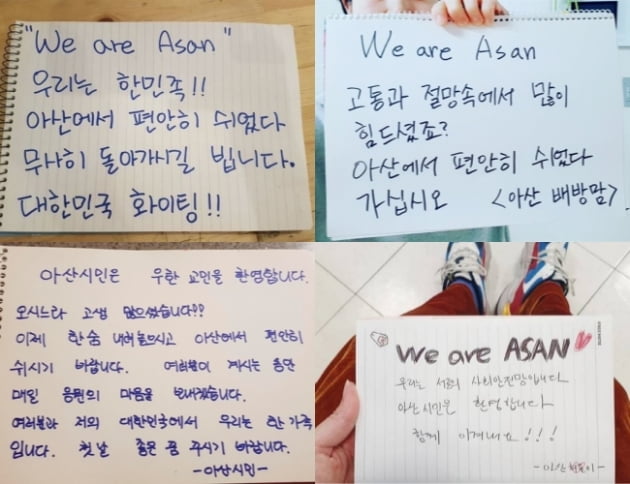 "We are Asan"
우리는 한민족!!
아산에서 편안히 쉬었다
무사히 돌아가시길 빕니다.
대한민국 화이팅!!
We are Asan
고통과 절망속에서 많이
힘드셨죠?
아산에서 편안히 쉬었다
가십시오 <아산 배방맘>
아산시민은 우한 교민을 환영합니다.
오시느라 고생 많으셨습니다??
이제 한숨 내려놓으시고 아산에서 편안히
쉬시기 바랍니다. 여러분이 계시는 동안
매일 응원의 마음을 보내겠습니다.
여러분과 저의 대한민국에서 우리는 한 가족
입니다. 첫날 좋은 꿈 꾸시기 바랍니다.
-아산시민-
We are ASAN
우리는 서로의 사회안전망입니다
아산시민은 환영합니다
함께 이겨내요!!!
-아산